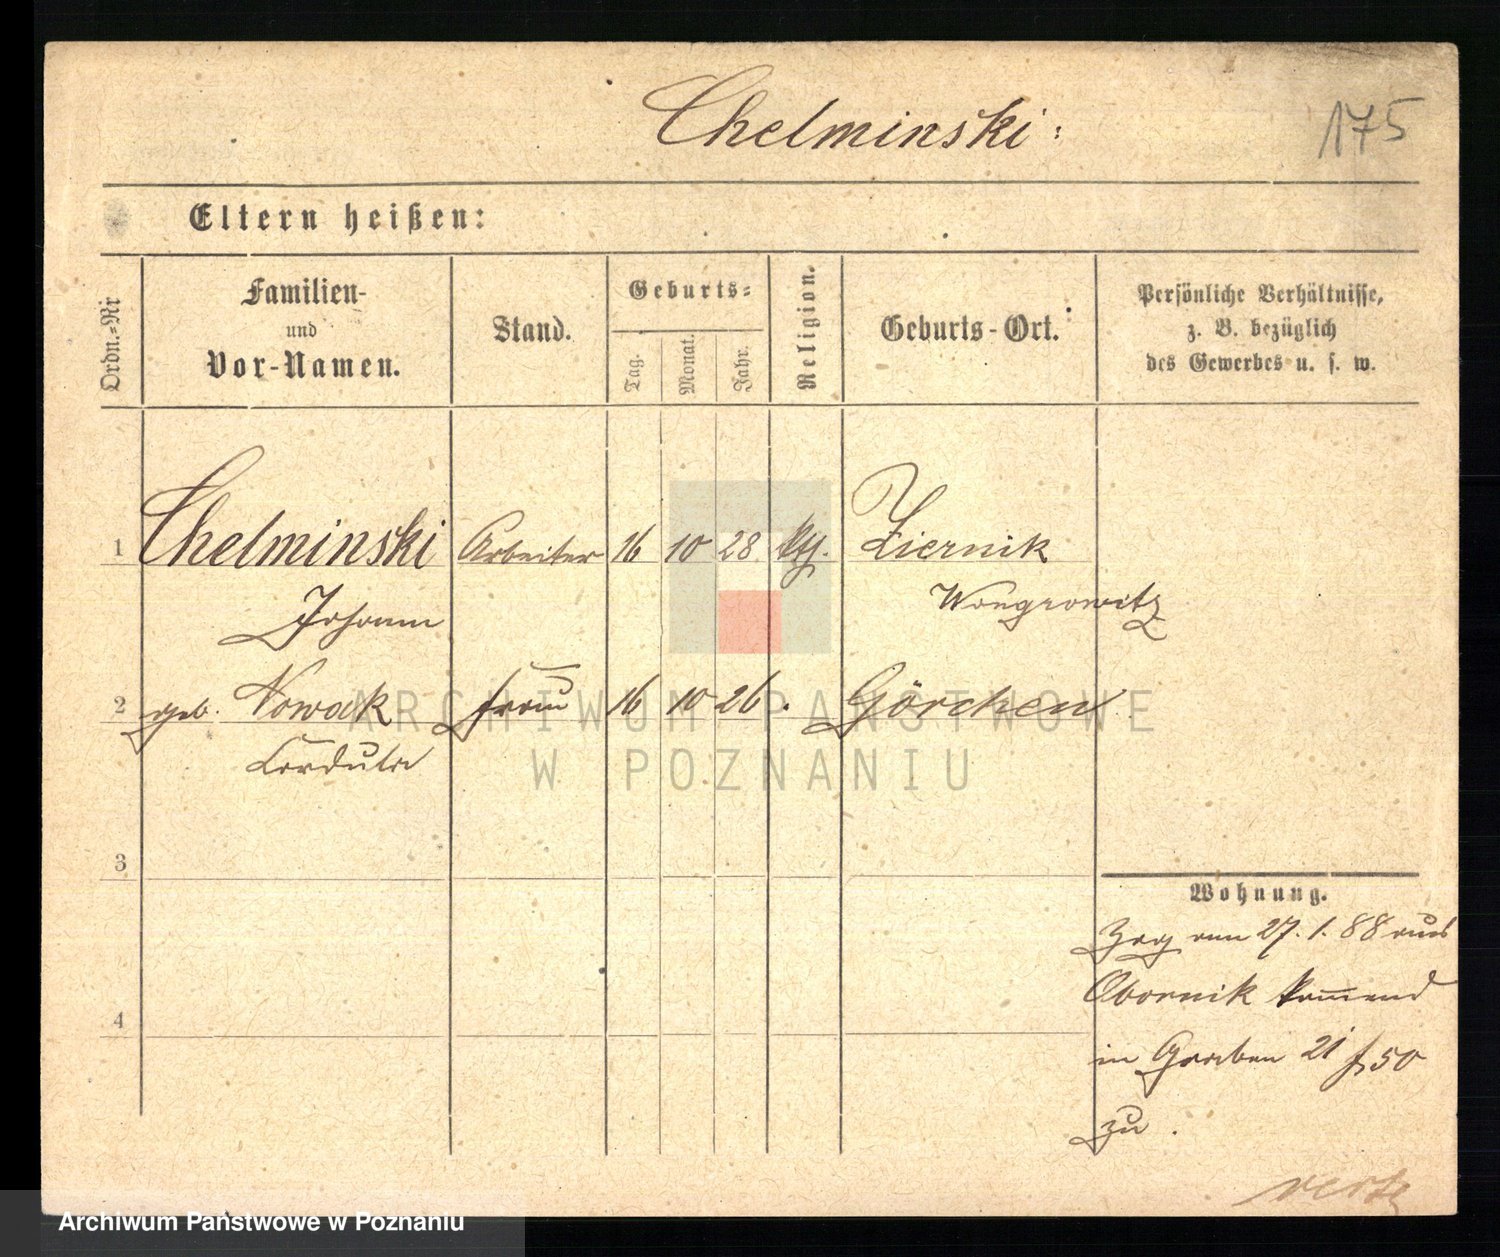 Chelminski:
175
Eltern heißen:
Ordn.=Nr
Familien-
und
Vor-Namen.
Stand.
Geburts=
Tag.
Monat.
Jahr.
Religion.
Geburts-Ort.
Persönliche Verhältnisse,
z. B. bezüglich
des Gewerbes u. s. w.
1 Chelminski Arbeiter 16 10 28. kth. Ziernik
Johann Wongrowitz
2 geb. Nowack Frau 16 10 26 . Görchen
Cordula
3
Wohnung.
Zzg am 27. 1. 88 aus
Obornik kommend
4
in Graben 21
50
zu.
ARCHIWUM PAŃSTWOWE
W POZNANIU
Archiwum Państwowe w Poznaniu